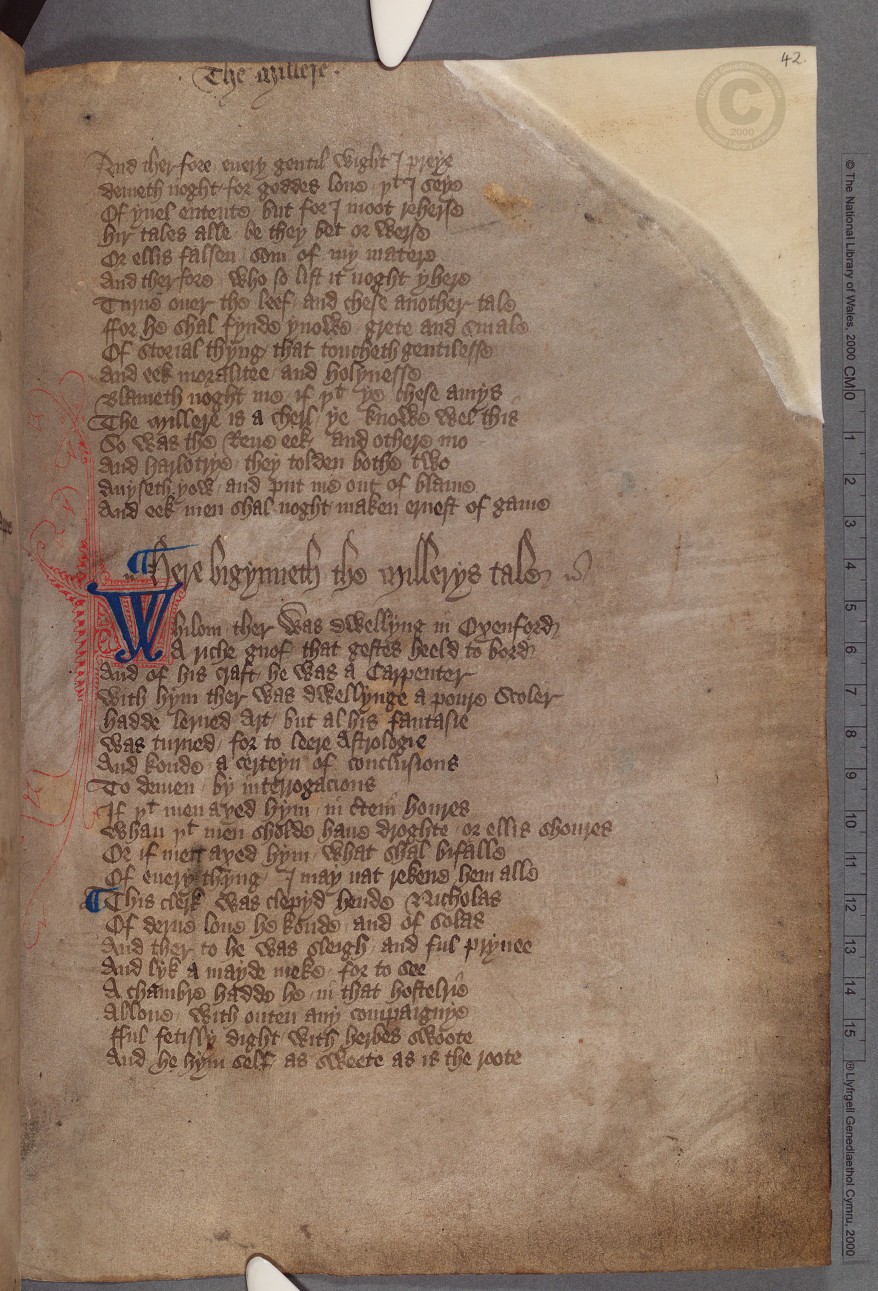 The Millere .
42.
And ther fore / euery gentil wight I preye
demeth noght / for goddes loue / yt I seye
Of yuel entente / but for I moot reherse
hir tales alle / be they bet or werse
Or ellis falsen / som of my matere
And ther fore / who so list it noght yheere
Turne ouer the leef / and chese another tale
ffor he shal fynde ynowe / grete and smale
Of storial thyng / that toucheth gentilesse
And eek moralitee / and holynesse
Blameth noght me / if yt ye chese amys
The Millere is a cherl / ye knowe wel this
So was the Reue eek / and othere mo
And harlotrye / they tolden bothe two
Auyseth yow / and put me out of blame
And eek men shal noght / maken ernest of game
¶ Here bigynneth the Millerys tale
Whilom / ther was dwellyng in Oxenford
A riche gnof / that gestes heeld to bord
And of his craft / he was a Carpenter
with hym ther was dwellynge a poure Scoler
hadde lerned Art / but al his fantasie
was turned / for to leere Astrologie
And koude / a certeyn of conclusions
To demen / by interrogacions
If yt men axed hym / in certein houres
whan yt men sholde haue droghte / or ellis shoures
Or if men axed hym / what shal bifalle
Of euery thyng / I may nat rekene hem alle
¶ This clerk / was clepyd hende Nicholas
Of derne loue he koude / and of solas
And ther to he was sleigh / and ful pryuee
And lyk a mayde meke / for to see
A chambre hadde he / in that hostelrie
Allone / with outen any compaignye
fful fetisly dight / with herbes swoote
And he hym self / as sweete as is the roote
© The National Library of Wales, 2000 CM
0
1
2
3
4
5
6
7
8
9
10
11
12
13
14
15
® Llyfrgell Genedlaethol Cymru, 2000
C
2000